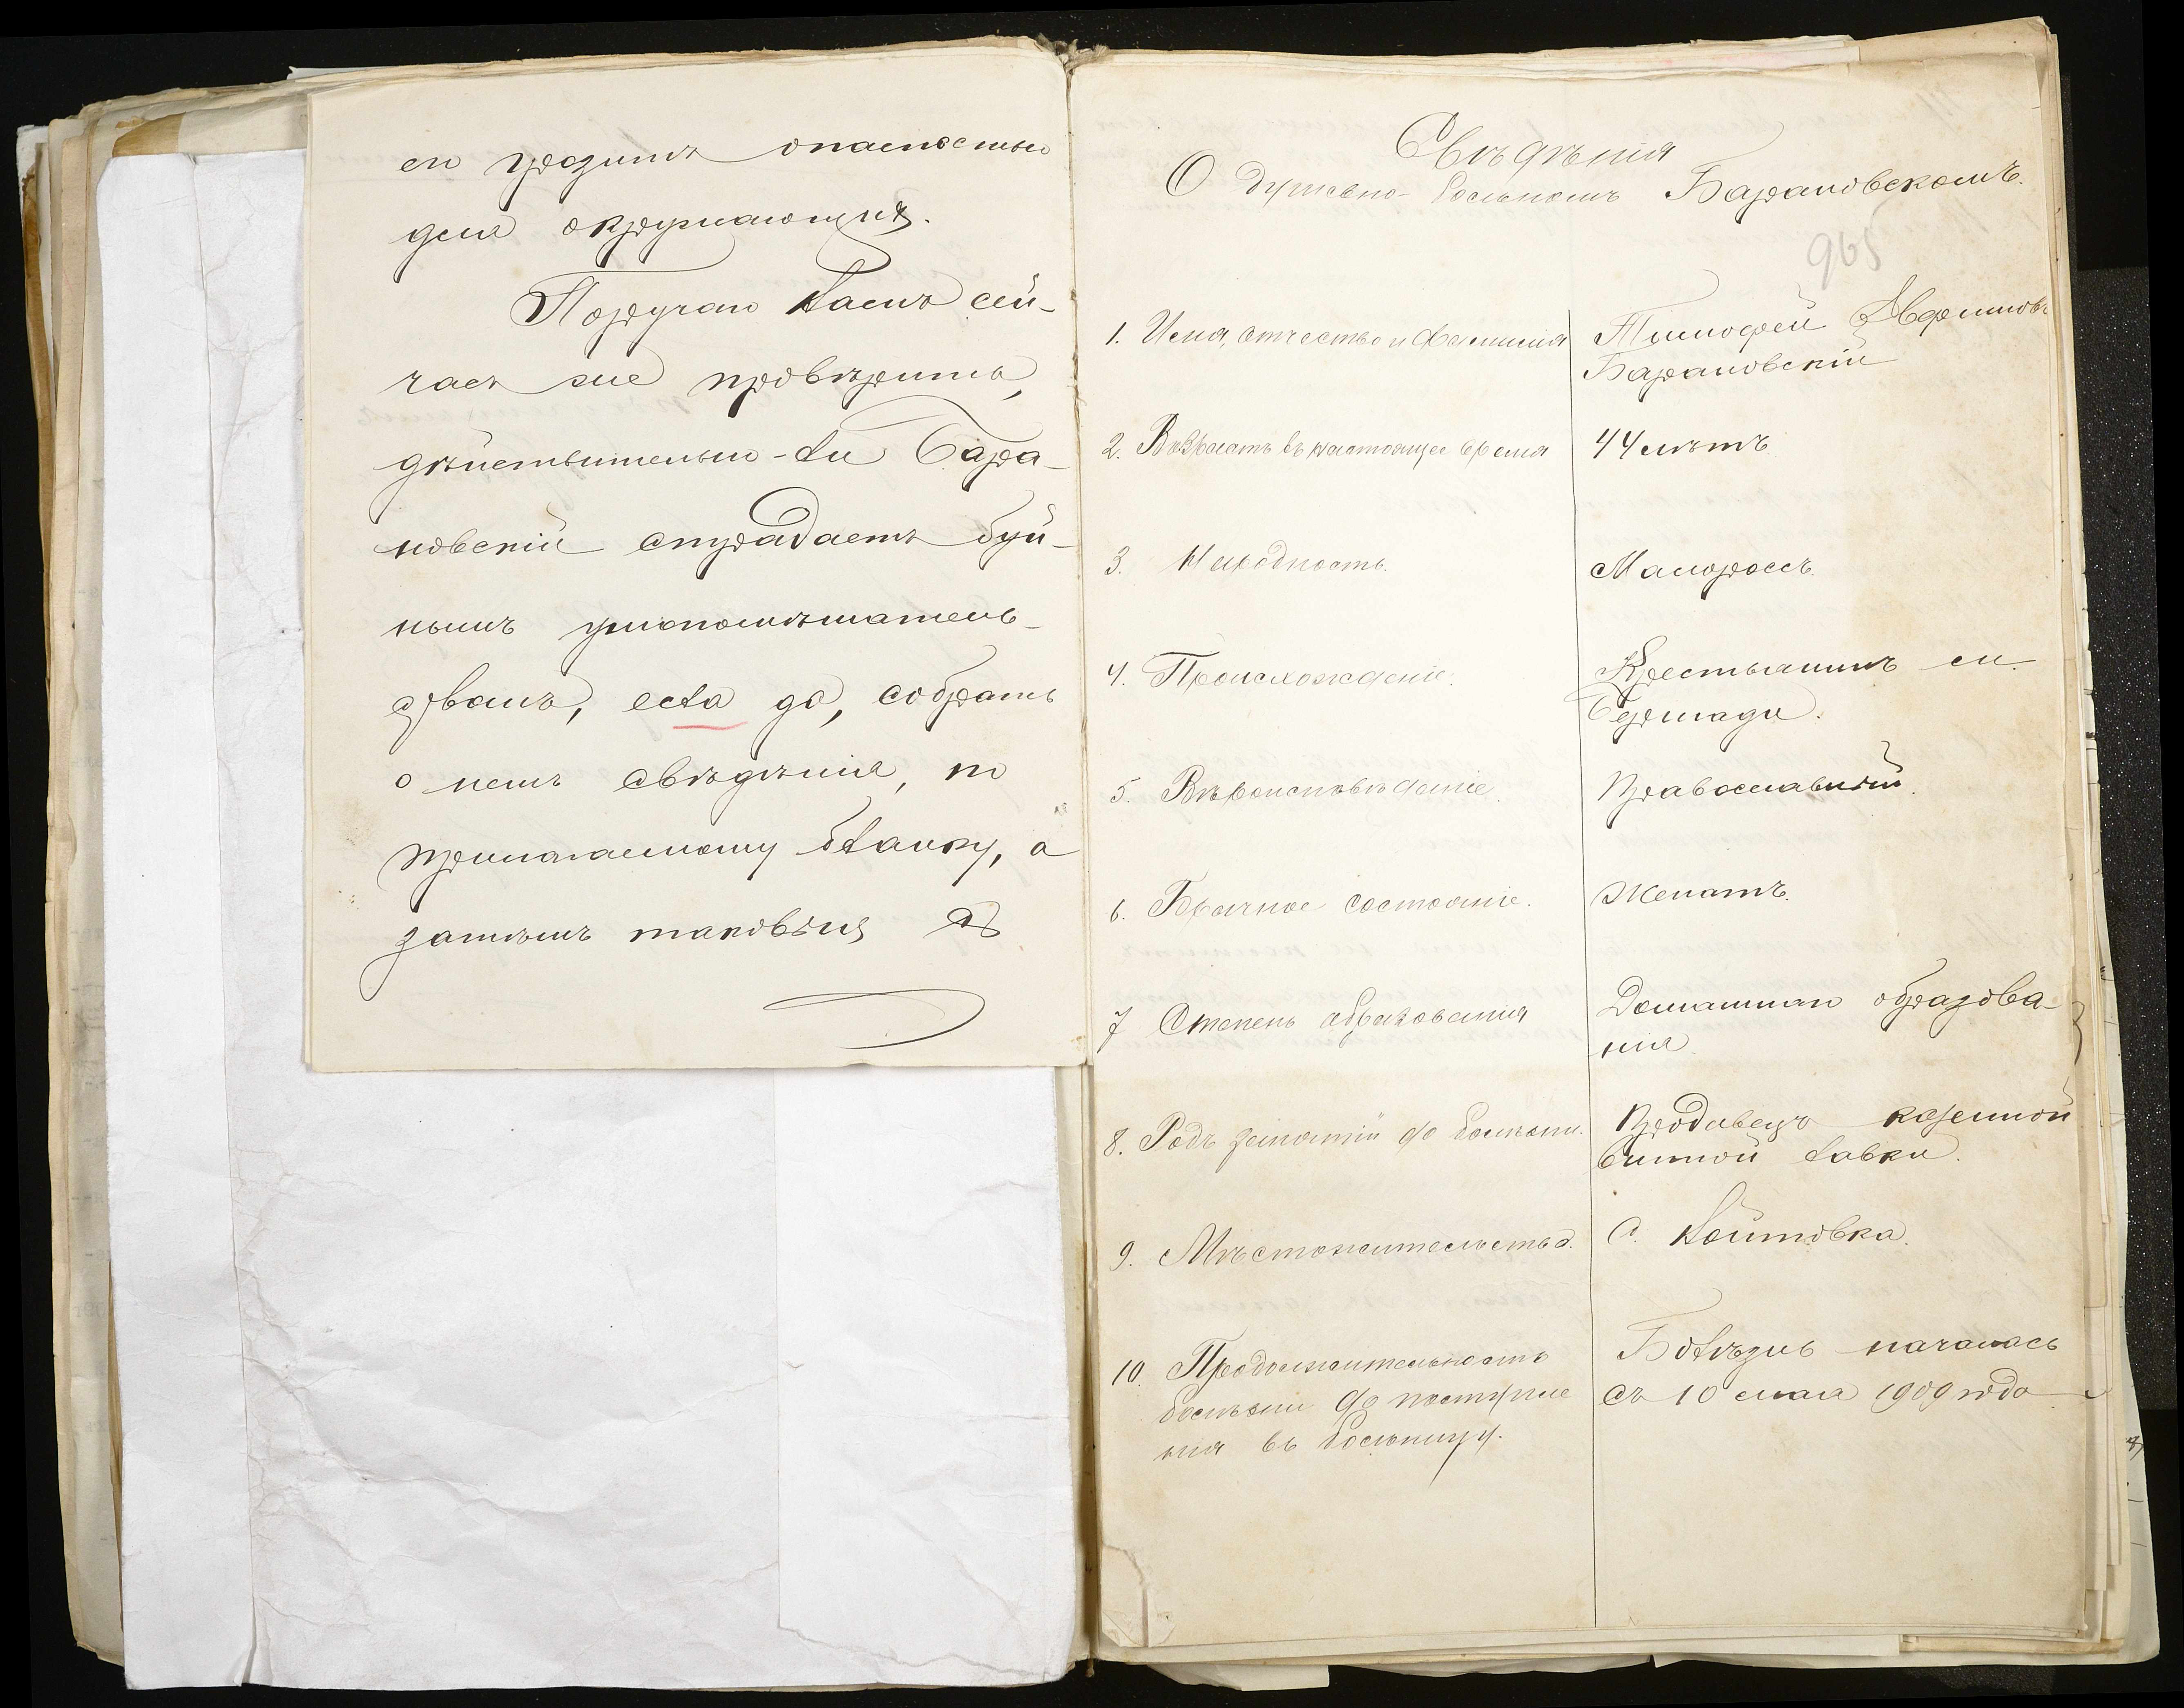 ею грозитъ опасностью
для окружающихъ.
Поручаю Вамъ сей-
часъ же провѣрить,
дѣйствительно-ли Бара-
новскій страдаетъ буй-
нымъ умопомѣшатель-
ствомъ, если да, собрать
о немъ свѣдѣнія, по
прилагаемому бланку, а
затѣмъ таковыя съ
Свѣдѣнія
О душевно-больномъ Барановскомъ.
965
1. Имя, отчество и фамилія
Тимофей Ефимовъ
Барановскій
2. Возрастъ въ настоящее время
44 лѣтъ
3. Народность.
Малороссъ.
4. Происхожденіе.
Крестьянинъ м.
Бершади.
5. Вѣроисповѣданіе.
Православный.
6. Брачное состояніе.
Женатъ.
7 Степень образованія
Домашняго образова-
нія.
8. Родъ занятій до болѣзни.
Продавецъ казенной
винной лавки.
9. Мѣстожительство.
с. Войтовка.
10. Продолжительность
болѣзни до поступле
нія въ больницу.
Болѣзнь началась
съ 10 мая 1909 года